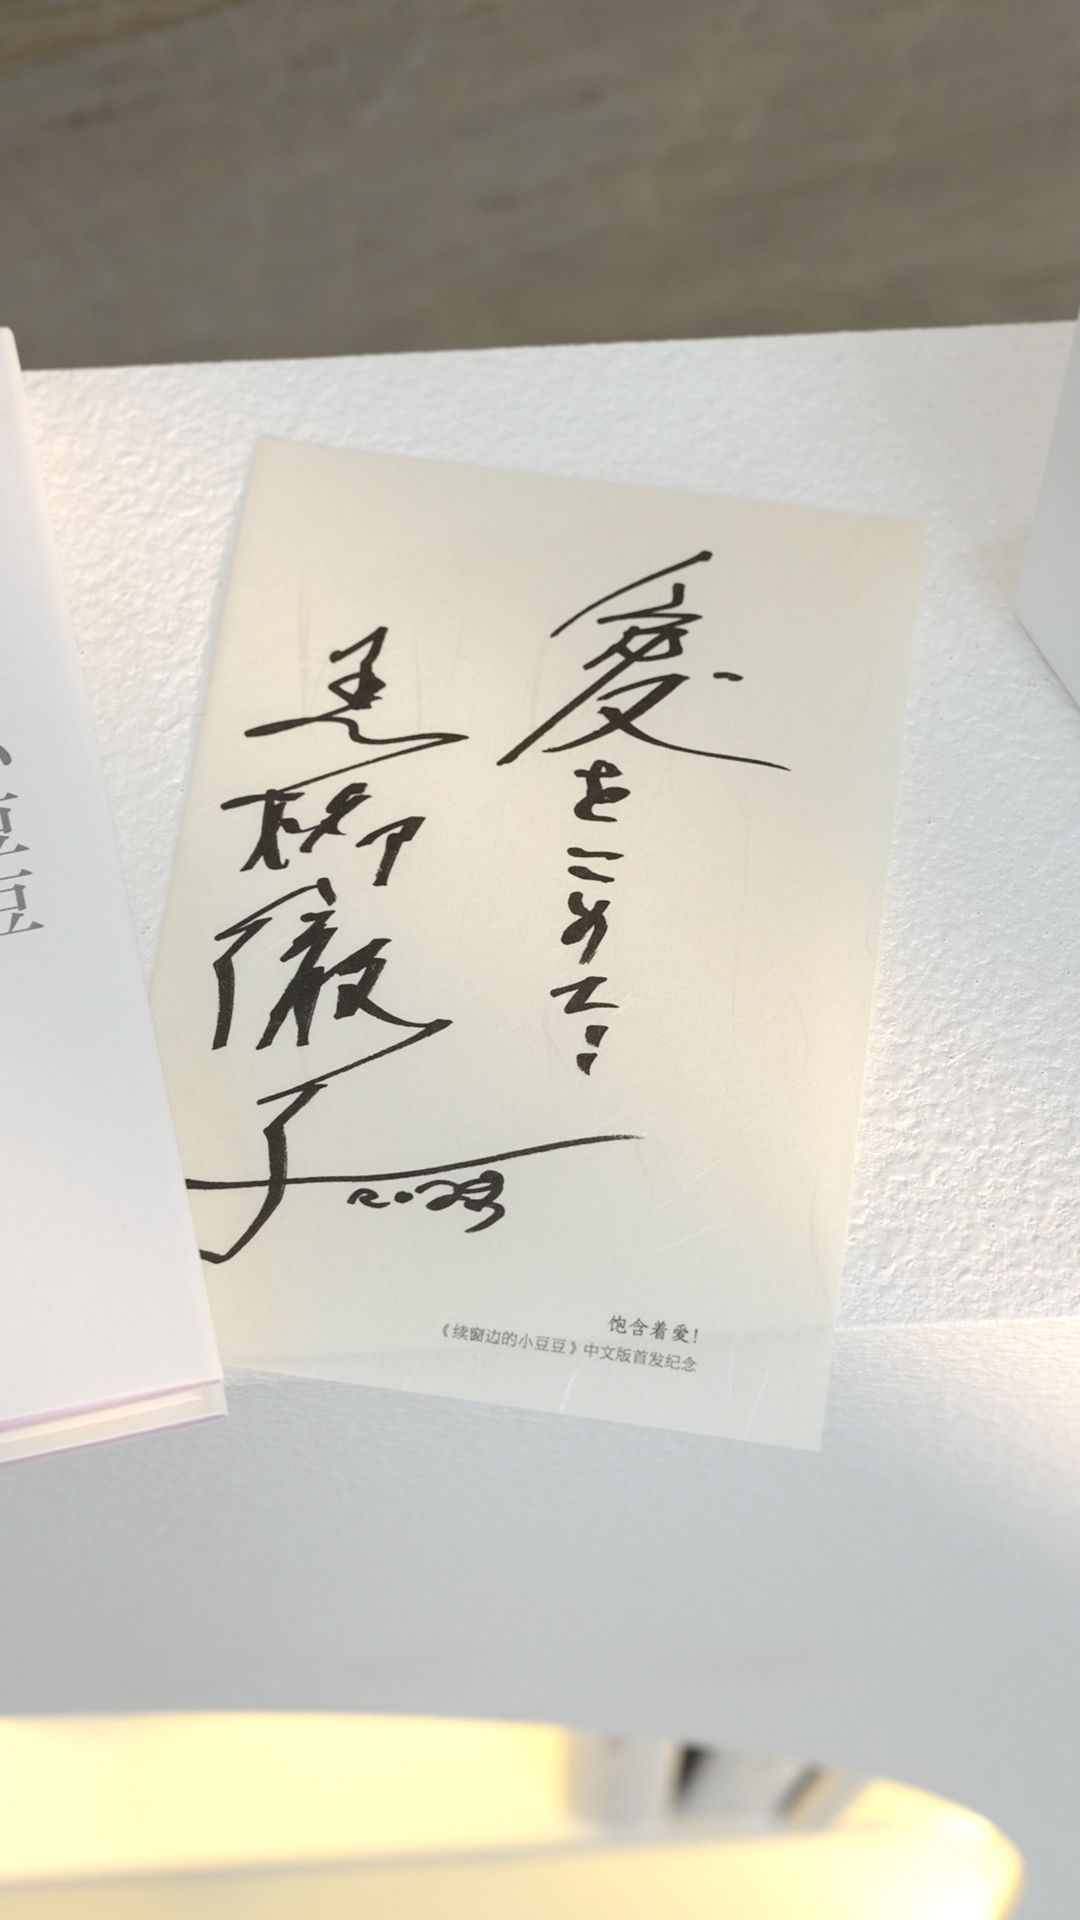 愛をこめて…
黒柳徹子
2023
饱含着爱！
《续窗边的小豆豆》中文版首发纪念
小豆豆